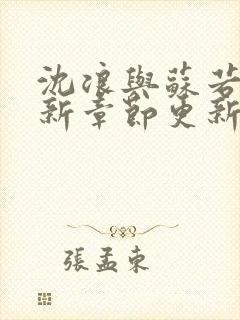 沈浪與蘇若
新章節更新
張孟東